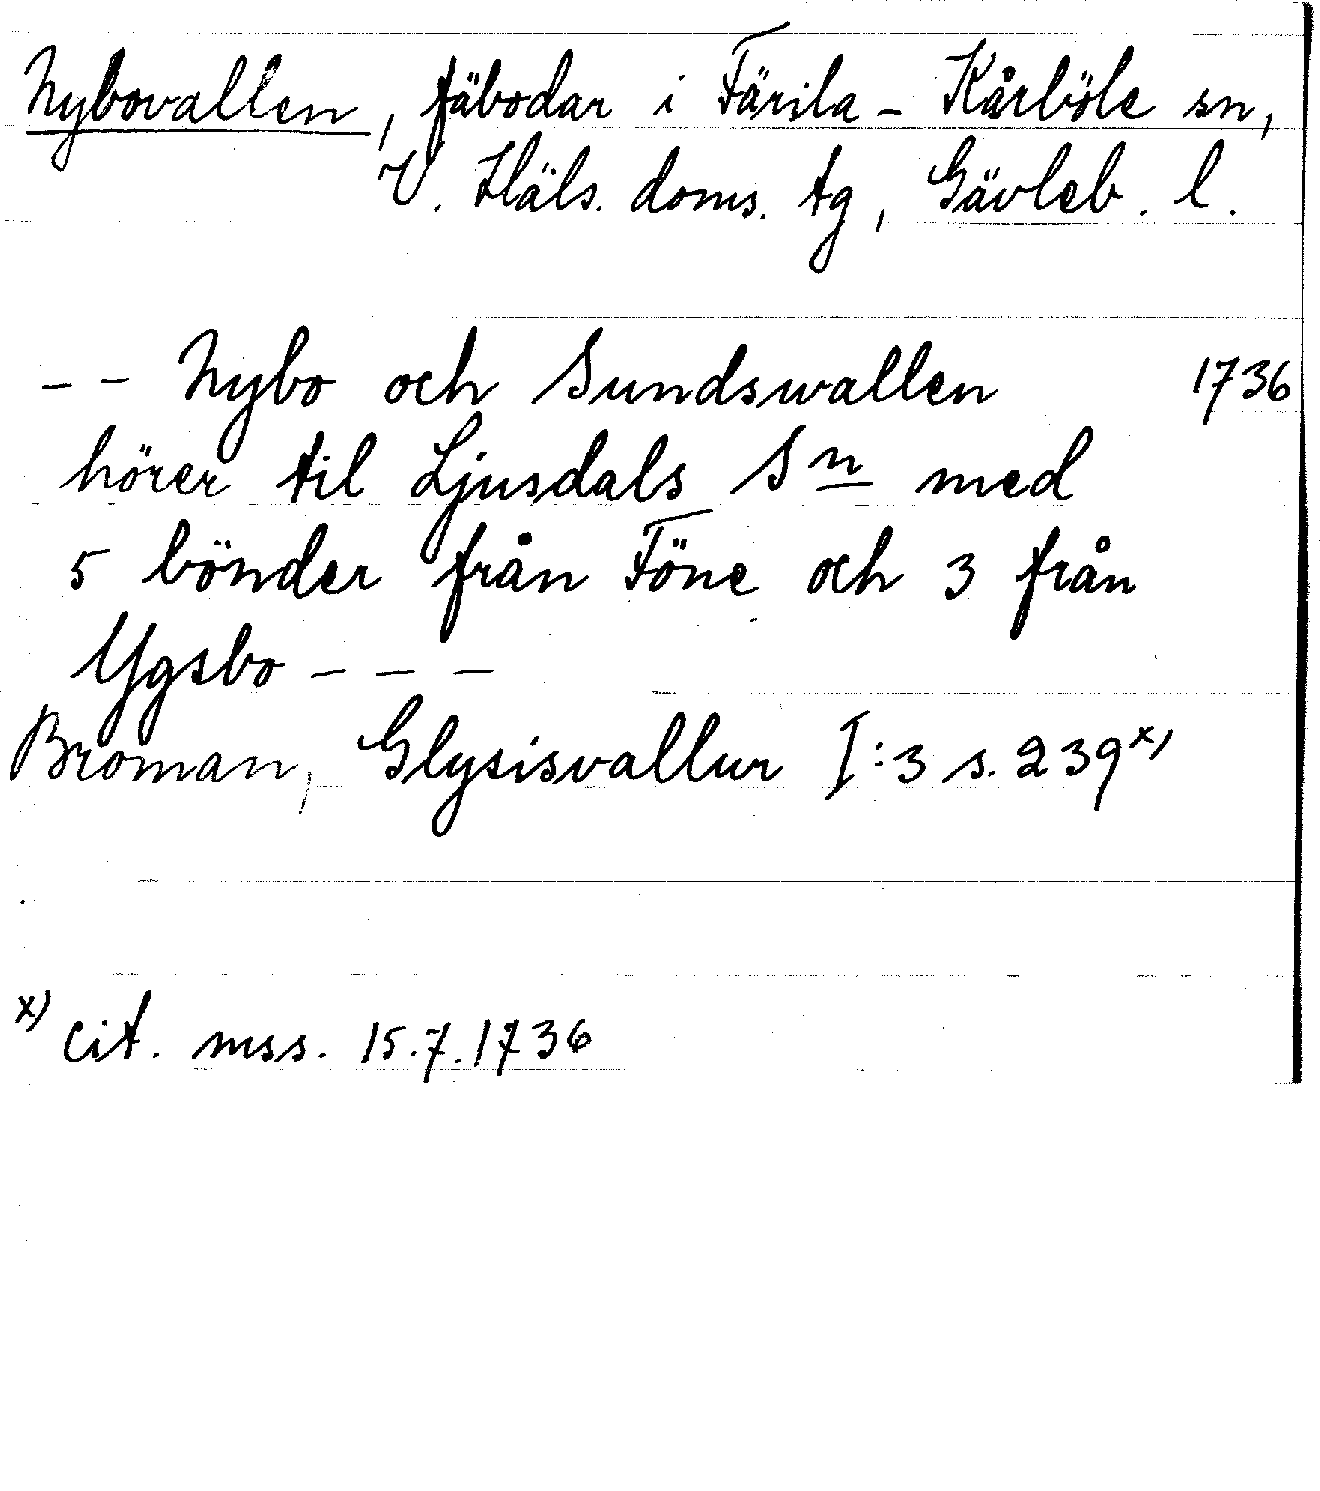 Nybovallen, fäbodar i Färila - Kårböle sn,
V. Häls. doms. tg, Gävleb. l.
- - Nybo och Sundswallen 1736
hörer til Ljusdals Sn med
5 bönder från Föne och 3 från
Ygsbo - - -
Broman, Glysisvallur I:3 s. 239x)
x) cit. mss. 15.7.1736